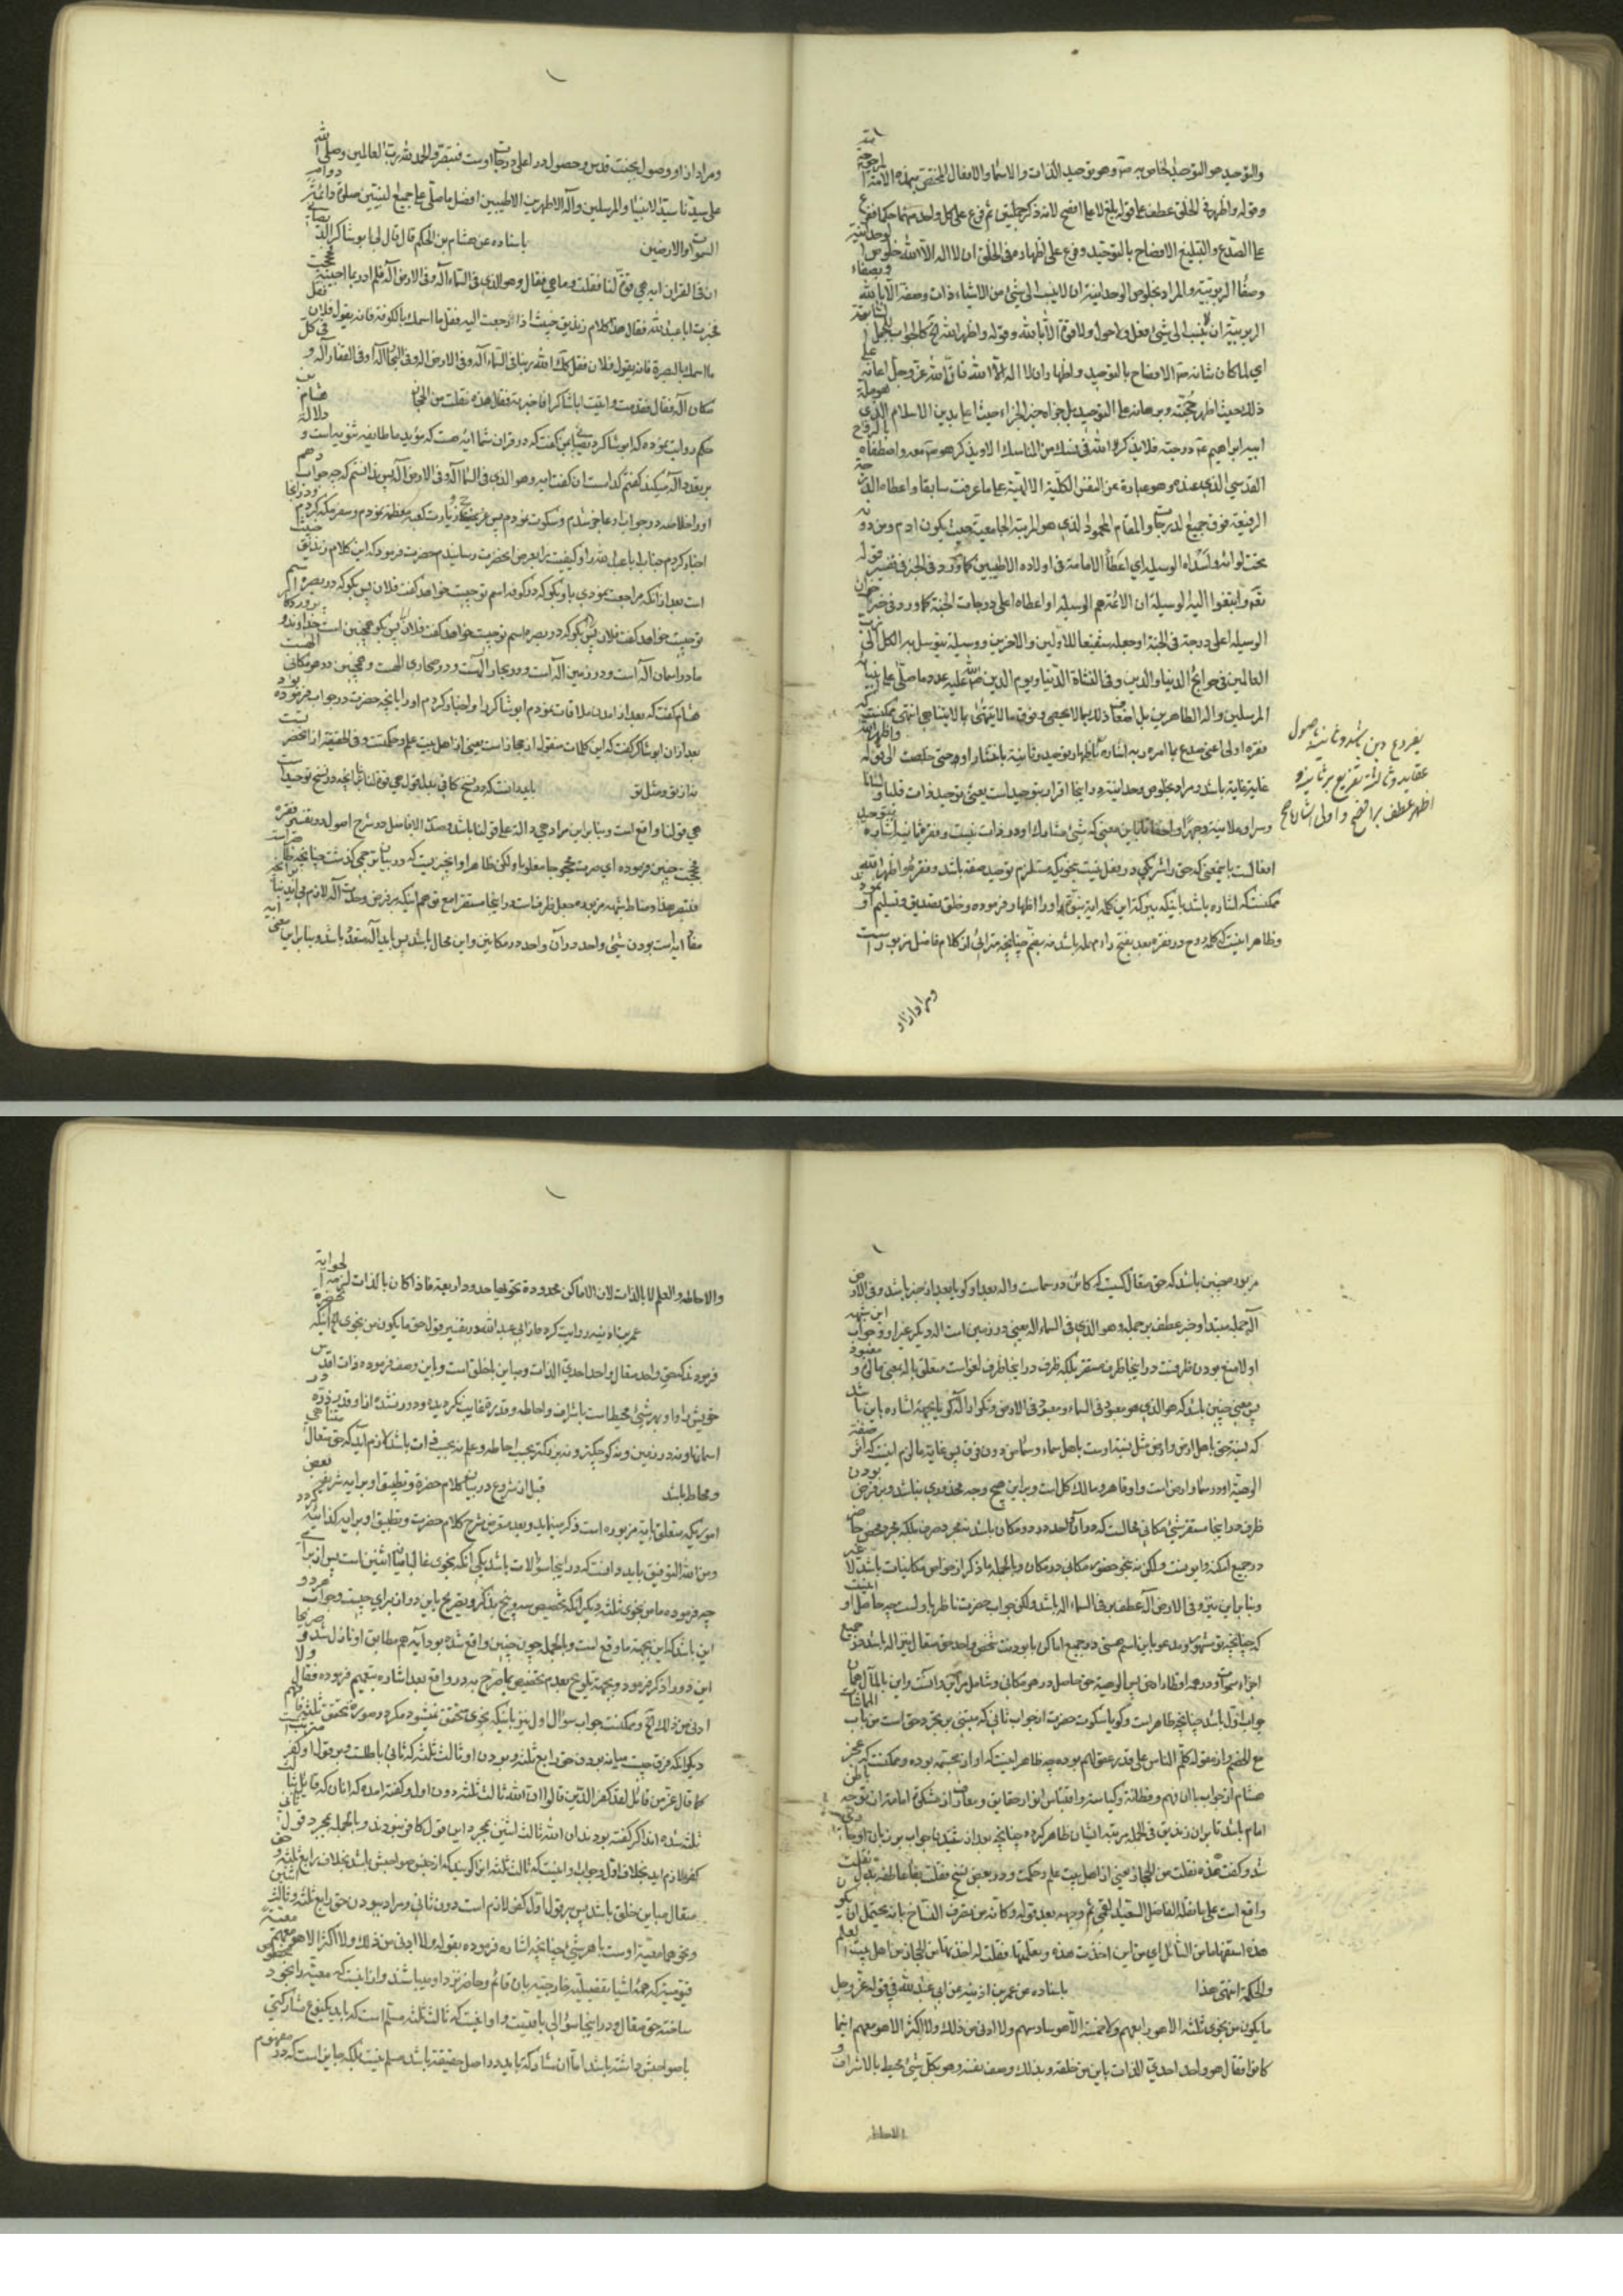 والتوحید هو التوحید الخاص به ص وهو توحید الذات والاسماء والافعال المختص بهذه الامة المرحومة
وقوله واظهر فی الخلق عطف علی قوله بلغ لا علی افصح لانه ذکر جملتین ثم فرع علی کل واحد منهما حکما ففرع
علی الصدع والتبلیغ الافصاح بالتوحید وفرع علی اظهاره فی الخلق ان لا اله الا الله خلوص الوحدانیة
وصفاء الربوبیة والمراد بخلوص الوحدانیة ان لا ینسب الی شیء من الاشیاء ذات وصفة الا بالله وبصفاء
الربوبیة ان لا ینسب الی شیء فعل ولا حول ولا قوة الا بالله وقوله واظهر الله
ای لما کان شانه ص الافصاح بالتوحید واظهار ان لا اله الا الله فان الله عز وجل اعانه علی
ذلک حیث اظهر حجته وبرهانه علی التوحید بل جزاه خیر الجزاء حیث اعلی بدین الاسلام الذی هو ملة
ابیه ابراهیم ع درجته فلا یذکر الله فی نسک من المناسک الا ویذکر هو ص معه واصطفاه بالروح
القدسی الذی عنده وهو عبارة عن النفس الکلیة الالهیة علی ما عرفت سابقا واعطاه الدرجة
الرفیعة فوق جمیع الدرجات والمقام المحمود الذی هو المرتبة الجامعیة بحیث یکون ادم ومن دونه
تحت لوائه ولسداه الوسیلة ای اعطاه الامامة فی اولاده الاطیبین کما ورد فی الخبر فی تفسیر قوله
تعالی وابتغوا الیه الوسیلة ان الائمة هم الوسیلة او اعطاه اعلی درجات الجنة کما ورد فی خبر ان
الوسیلة اعلی درجة فی الجنة او جعله شفیعا للاولین والاخرین ووسیلة یتوسل به الکل الی رب
العالمین فی حوائج الدنیا والدین وفی النشاة الدنیا ویوم الدین صلی الله علیه عدد ما صلی علی انبیائه
المرسلین واله الطاهرین بل اضعاف ذلک بما لا یحصی وفوق ما لا یتناهی بما لا یتناهی انتهی ممکنست که
فقره اولی اعنی صدع بما امر به اشاره باظهار توحید وثانیة باعتبار او وحتی خلصت الی قوله واظهر الله
غایة غایة باشد ومراد بخلوص وحدانیة در اینجا اقرار بتوحید است یعنی توحید ذات قلبا ولسانا
وسرا وعلانیة وجهرا واخفاتا باین معنی که شیء مشارک او در ذات نیست وفقره ثانیه اشاره بتوحید
افعالست باینمعنی که حق را شریکی در فعل نیست بنحویکه مستلزم توحید صفة باشد وفقره واظهر الله
ممکنست که اشاره باشد باینکه ببرکة این کلمه ایة بنوة او را اظهار فرموده وخلق تصدیق وتسلیم او نمود
وظاهر اینست که کلمه روح در فقره بعد بفتح راء مهمله باشد نه بضم چنانچه متراءی از کلام فاضل مزبور است
ومراد از او
یفرع دین باشد وثانیه باصول
عقاید وثالثه تفریع بر ثانیه و
اظهر عطف بر افصح واولی اشاره اصح
ومراد از او وصول بجنت قدس وحصول در اعلی درجات اوست فتبصر والحمد لله رب العالمین وصلی الله
علی سیدنا سید الانبیاء والمرسلین وآله الاطهرین الاطیبین افضل ما صلی علی جمیع النبیین صلوة دائمة بدوام
السموات والارضین باسناده عن هشام بن الحکم قال قال لی ابو شاکر الدیصانی
ان فی القران ایه هی قوة لنا فقلت وما هی فقال وهو الذی فی السماء آله وفی الارض آله فلم ادر بما اجیبه فحججت
فخبرت ابا عبد الله فقال هذا کلام زندیق خبیث اذا رجعت الیه فقل ما اسمک بالکوفة فانه یقول فلان فقل
ما اسمک بالبصرة فانه یقول فلان فقل کذلک الله ربنا فی السماء آله وفی الارض اله وفی البحار اله وفی القفار آله وفی کل
مکان آله فقال فقدمت واتیت ابا شاکر فاخبرته فقال هذه نقلت من الحجاز هشام بن
حکم روایت نموده که ابو شاکر دیصانی بمن گفت که در قران شما ایة هست که مؤید ما طایفه ثنویه است ودلالة
بر تعدد آله میکند گفتم کدامست ان گفت ایه وهو الذی فی السماء آله وفی الارض آله پس ندانستم که چه جواب دهم
او را خلاصه در جواب او عاجز شدم وسکوت نمودم پس عزم حج وزیارت کعبه معظمه نمودم وسفر مکه کردم ودر انجا
اخبار کردم جناب ابا عبد الله را وکیفیت را بعرض انحضرت رسانیدم حضرت فرمود که این کلام زندیق خبیث
است بعد از انکه مراجعت نمودی باو بگو که در کوفه اسم تو چیست خواهد گفت فلان پس بگو که در بصره اسم
تو چیست خواهد گفت فلان پس بگو همچنین است خداوند وپروردگار
ما در اسمان آله است ودر زمین آله است ودر بحار آلهست ودر صحاری الهست وهمچنین در هر مکانی الهست
هشام گفت که بعد از امدن ملاقات نمودم ابو شاکر را واخبار کردم او را بانچه حضرت در جواب فرموده بود
بعد از ان ابو شاکر گفت که این کلمات منقوله از حجاز است یعنی از اهل بیت علم وحکمتست وفی الحقیقه از انحضرتست
نه از تو ومثل تو بایددانست که در نسخ کافی بعد از قول هی قوة لنا بنا بر انچه در نسخ توحید است
هی قولنا واقع است وبنابراین مراد هی دالة علی قولنا باشد وصدر الافاضل در شرح اصول در تفسیر فقره
فحججت چنین فرموده ای صرت محجوجا مغلوبا ولکن ظاهر او اینچیزیست که در بیان ترجمه گذشت چنانچه ظاهر است
فتبصر هذا ومناط شبهه مزبوره جعل ظرفست در اینجا مستقر با مع توهم اینکه بر فرض وحدت آله لازم می اید بنا بر انچه
مفاد ایه است بودن شیء واحد در آن واحد در مکانین واین محال باشد پس باید آله متعدد باشد وبنابراین معنی ایه
مزبوره چنین باشد که حق متعال کیست که کائن در سماست واله بعد او گویا بعد از خبر باشد وفی الارض
آله جمله مبتدا وخبر عطف بر جمله وهو الذی فی السماء اله یعنی در زمین است اله دیگر غیر او وجواب این شبهه
اولا منع بودن ظرفست در اینجا ظرف مستقر بلکه ظرف در اینجا ظرف لغو است متعلق باله بمعنی مالوه ومعبود
پس معنی چنین باشد که هو الذی هو معبود فی السماء ومعبود فی الارض وتکرار آله گویا بجهة اشاره باین باشد
که نسبة حق باهل ارض وارض مثل نسبة اوست باهل سماء وسماء من دون فرق پس غایة ما لزم اینست که اثر صفة
الوهیة او در سما وارض است واو قاهر ومالک کل است وبر این هیچ وجه محذوری نباشد وبر فرض بودن
ظرف در اینجا مستقر شیء مکانی محالست که در آن واحد در دو مکان باشد نه مجرد صرف بلکه مجرد محض حاضر
در جمیع امکنه واینست ولکن نه بنحو حضور مکانی در مکان وبالجمله ما ذکر از خواص مکانیات باشد لا غیر
وبنابراین نیز وفی الارض آله عطف بر فی السماء اله باشد ولکن جواب حضرت ناظر باول است چه حاصل او اینست
که چنانچه تو مشهور ومدعو باین اسم هستی در جمیع اماکن با بودنت شخص واحد حق متعال نیز اله باشد در جمیع
اجزاء سموات وارض
جواب اول باشد چنانچه ظاهر است وگویا سکوت حضرت از جواب ثانی که مبتنی بر تجرد حق است من باب المماشات
مع الخصم واز مقوله کلم الناس علی قدر عقولهم بوده چه ظاهر اینست که او از مجسمه بوده وممکنست که عجز
هشام از جواب با ان فهم وفطانة وکیاسة واقتباس انوار حقایق ومعارف از مشکوة امامة ان توجه باطن
امام باشد تا بر ان زندیق فی الجمله مرتبه ایشان ظاهر گردد چنانچه بعد از شنیدن جواب بر زبان او جاری
شد وگفت هذه نقلت من الحجاز یعنی از اهل بیت علم وحکمت ودر بعض نسخ فقلت بفاء عاطفه بدل نقلت
واقع است علی ما نقله الفاضل السعید القمی ثم وجهه بعد قوله وکانه من تصرف النساخ بانه یحتمل ان یکون
هذه استفهاما من السائل ای من این اخذت هذه وتعلمتها فقلت له اخذتها من الحجاز من اهل بیت العلم
والحکمة انتهی هذا باسناده عن عمر بن اذینه عن ابی عبد الله فی قوله عز وجل
ما یکون من نجوی ثلثة الا هو رابعهم ولا خمسة الا هو سادسهم ولا ادنی من ذلک ولا اکثر الا هو معهم اینما
کانوا فقال هو واحد احدی الذات باین من خلقه وبذلک وصف نفسه وهو بکل شیء محیط بالاشراف و
الاحاطه
والاحاطه والعلم لا بالذات لان الاماکن محدودة تحویها حدود اربعة فاذا کان بالذات لزمها الحوایة
عمر بن اذینه روایت کرده از ابی عبد الله در تفسیر قول حق ما یکون من نجوی الخ اینکه حضرة
فرمودند که حق واحد متعال واحد احدی الذات ومباین باخلق است وباین وصف فرموده ذات اقدس
خویش را واو بهر شیء محیط است باشراف واحاطه وقدرة غایب نگردیده ودور نشده از او قدر ذره در
اسمانها ونه در زمین ونه کوچکتر ونه بزرگتر بحسب احاطه وعلم نه بحسب ذات باشد تا لازم اید که حق متعال متناهی
ومحاط باشد قبل از شروع در بیان کلام حضرة وتطبیق او بر ایه شریفه بعض
اموریکه متعلق بایة مزبوره است ذکر مینماید وبعد متعرض شرح کلام حضرت وتطبیق او بر ایه کذائیه گردد
ومن الله التوفیق باید دانست که در اینجا سؤالات باشد یکی انکه نجوی غالبا میان اثنین است پس از برای
چه فرموده ما من نجوی ثلثة دیگر انکه تخصیص سه وپنج بذکر وتصریح باین دو از برای چیست وجواب هر دو
این باشد که این بجهة ما وقع است وبالجمله چون چنین واقع شده بود آیه هم مطابق او نازل شد وصریحا
این دو را ذکر فرمود وبجهة تلویح بعدم تخصیص بما صرح به در واقع بعد اشاره بتعمیم فرموده فقال ولا
ادنی من ذلک الخ وممکنست جواب سؤال اول نیز باینکه نجوی متحقق نمیشود مگر در صورة تحقق ثلثة فافهم
دیگر انکه فرق چیست میانه بودن حق رابع ثلثة وبودن او ثالث ثلثة که ثانی باطلست وبر قول او کفر مترتب است
کما قال عز من قائل لقد کفر الذین قالوا ان الله ثالث ثلثة دون اول وگفته امده که انان که قایل ثالث
ثلثه شده اند اگر گفته بودند ان الله ثالث اثنین بمجرد این قول کافر نبودند وبالجمله بمجرد قول ثانی
کفر لازم اید بخلاف اول وجواب اینست که ثالث ثلثه این گویند که از جنس صواحبش باشد بخلاف رابع ثلثه وحق
متعال مباین خلق باشد پس بر قول اول کفر لازم است دون ثانی ومراد ببودن حق رابع ثلثة وثالث اثنین
ونحو هما معیة اوست باهر شیء چنانچه اشاره فرموده بقوله ولا ادنی من ذلک ولا اکثر الا هو معهم معیة
قیومیة که همه اشیا بتفصیلة خارجیة بان قائم وحاضر نزد او میباشند واز اینست که معیة را بخود مخصوص
ساخته حق متعال ودر اینجا سؤالی باقیست واو اینست که ثالث ثلثه مسلم است که باید یکنوع مشارکتی
با صواحبش داشته باشد اما ان مشارکه باید در اصل حقیقة باشد مسلم نیست بلکه جایز است که در مفهوم